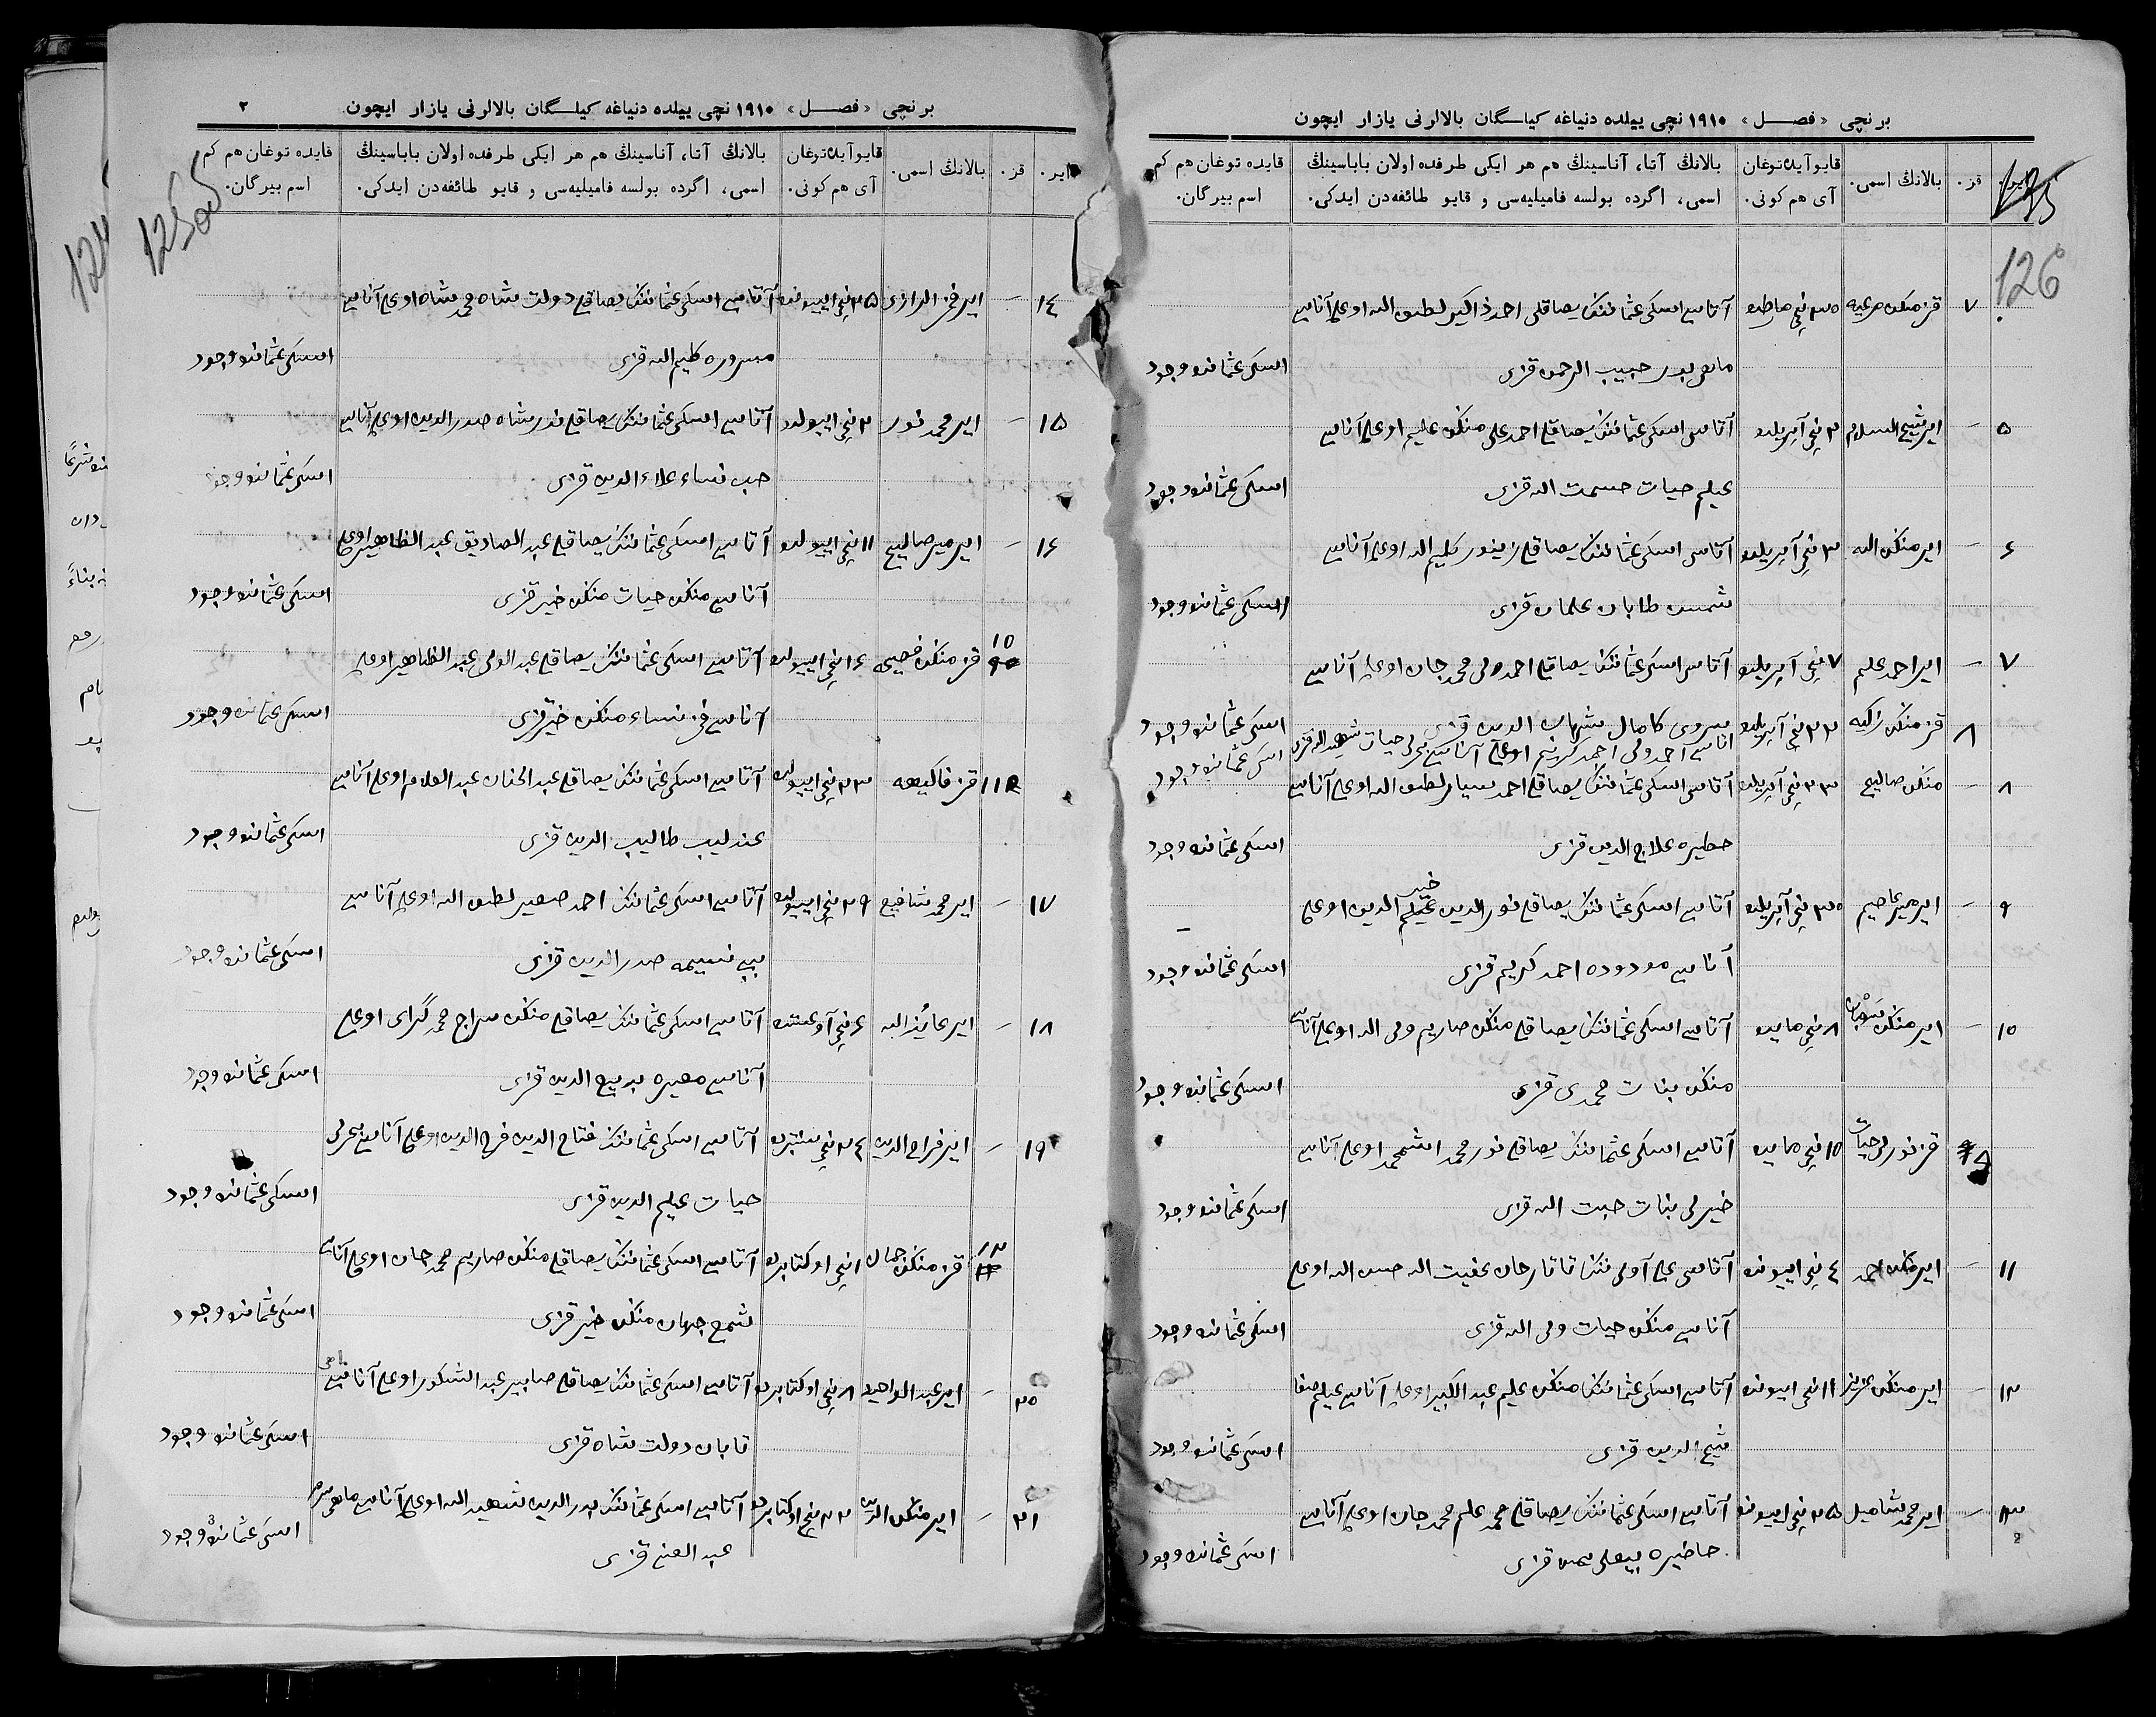 برنچی «فصل» ١٩١٠ نچی ییلده دنیاغه کیلگان بالالرنی یازار ایچون
قز.
بالانڭ اسمی.
قایو آیده توغان
آی هم کونی.
بالانڭ آتا، آناسینڭ هم هر ایکی طرفده اولان باباسینڭ
اسمی، اگرده بولسه فامیلیه‌سی و قایو طائفه‌دن ایدکی.
قایده توغان هم کم
اسم بیرگان.
126
٧ قز منکن مرعیه آتاسی اسکی عثماننڭ یصاقلی احمد ذاکیر لطف الله اوغلی آناسی
حبیب الرحمن قزی اسکی عثمانده وجود
٥ - ایر شیخ السلام ٢ نچی آپریلده آتاسی اسکی عثماننڭ یصاقلی احمد علی منکن علیم اوغلی آناسی
علیم حیات حسمت الله قزی اسکی عثمانده وجود
٦ - ایر منکن الله ٣ نچی آپریلده آتاسی اسکی عثماننڭ یصاقلی زینور کلیم الله اوغلی آناسی
شمس طابان علمان قزی اسکی عثمانده وجود
٧ - ایر احمد علم ٧ نچی آپریلده آتاسی اسکی عثماننڭ یصاقلی احمد ولی محمد جان اوغلی آناسی
سروی کامال شهاب الدین قزی اسکی عثمانده وجود
٨ قز منکن زاکیه ٢٢ نچی آپریلده آتاسی احمد ولی احمد کریم اوغلی آناسی حیات شهید الله قزی اسکی عثمانده وجود
٨ - منکن صالیح ٢٣ نچی آپریلده آتاسی اسکی عثماننڭ یصاقلی احمد سیار لطف الله اوغلی آناسی
خطیره علاج الدین قزی اسکی عثمانده وجود
٩ - ایر میر عاصیم ٣٠ نچی آپریلده آتاسی اسکی عثماننڭ یصاقلی نور الدین خیر الدین اوغلی
آناسی مودوده احمد کریم قزی اسکی عثمانده وجود
١٠ - ایر منکن ٨ نچی مایده آتاسی اسکی عثماننڭ یصاقلی منکن صاریم ولی الله اوغلی آناسی
منکن بنات محمدی قزی اسکی عثمانده وجود
قز نورلی حیات ١٥ نچی مایده آتاسی اسکی عثماننڭ یصاقلی نور محمد اشمحمد اوغلی آناسی
خیرلی بنات حبت الله قزی اسکی عثمانده وجود
١١ - ایر منکن احمد ٤ نچی اییونده آتاسی آولی ننڭ تاتار خان عفیت الله حسن الله اوغلی
آناسی منکن حیات ولی الله قزی اسکی عثمانده وجود
١٢ - ایر منکن عزیز ١١ نچی اییونده آتاسی اسکی عثماننڭ منکن علیم عبد الکبیر اوغلی آناسی علیم صفا
شیخ الدین قزی اسکی عثمانده وجود
١٣ - ایر محمد شامیل ٢٥ نچی اییونده آتاسی اسکی عثماننڭ یصاقلی محمد علم محمد جان اوغلی آناسی
حاضیره قزی اسکی عثمانده وجود
برنچی «فصل» ١٩١٠ نچی ییلده دنیاغه کیلگان بالالرنی یازار ایچون
٢
ایر.
قز.
بالانڭ اسمی.
قایو آیده توغان
آی هم کونی.
بالانڭ آتا، آناسینڭ هم هر ایکی طرفده اولان باباسینڭ
اسمی، اگرده بولسه فامیلیه‌سی و قایو طائفه‌دن ایدکی.
قایده توغان هم کم
اسم بیرگان.
125об
١٤ - ایر فخر الرازی ٢٥ نچی اییونده آتاسی اسکی عثماننڭ یصاقلی دولت شاه محمد شاه اوغلی آناسی
مسروره کلیم الله قزی اسکی عثمانده وجود
١٥ - ایر محمد نور ٢ نچی اییولده آتاسی اسکی عثماننڭ یصاقلی نور شاه صدر الدین اوغلی آناسی
حب نساء علاء الدین قزی اسکی عثمانده وجود
١٦ - ایر میر صالیح ١١ نچی اییولده آتاسی اسکی عثماننڭ یصاقلی عبد الصادیق عبد الظاهیر اوغلی
آناسی منکن حیات منکن خیر قزی اسکی عثمانده وجود
10 قز منکن فصیحه ١٦ نچی اییولده آتاسی اسکی عثماننڭ یصاقلی عبد الولی عبد الظاهیر اوغلی
آناسی فخر نساء منکن خیر قزی اسکی عثمانده وجود
11 قز فاکیهه ٢٣ نچی اییولده آتاسی اسکی عثماننڭ یصاقلی عبد الحنان عبد العلام اوغلی آناسی
عندلیب طالیب الدین قزی اسکی عثمانده وجود
١٧ - ایر محمد شافیع ٢٩ نچی اییولده آتاسی اسکی عثماننڭ احمد صغیر لطف الله اوغلی آناسی
بیبی نسیمه صدر الدین قزی اسکی عثمانده وجود
١٨ - ایر عایز الله ٦ نچی آوغستده آتاسی اسکی عثماننڭ یصاقلی منکن سراج محمد گرای اوغلی
آناسی مهیره بدیع الدین قزی اسکی عثمانده وجود
١٩ - ایر فراح الدین ٢٤ نچی سنتبرده آتاسی اسکی عثماننڭ فتاح الدین فرح الدین اوغلی آناسی
حیات علیم الدین قزی اسکی عثمانده وجود
١٢ قز منکن جمال ١ نچی اوکتابرده آتاسی اسکی عثماننڭ یصاقلی منکن صاریم محمد جان اوغلی آناسی
شمع جهان منکن خیر قزی اسکی عثمانده وجود
٢٠ - ایر عبد الواحید ٨ نچی اوکتابرده آتاسی اسکی عثماننڭ یصاقلی صابیر عبد الشکور اوغلی آناسی
تابان دولت شاه قزی اسکی عثمانده وجود
٢١ - ایر منکن الدین ٢٢ نچی اوکتابرده آتاسی اسکی عثماننڭ بدر الدین شهید الله اوغلی آناسی
عبد الغنی قزی اسکی عثمانده وجود